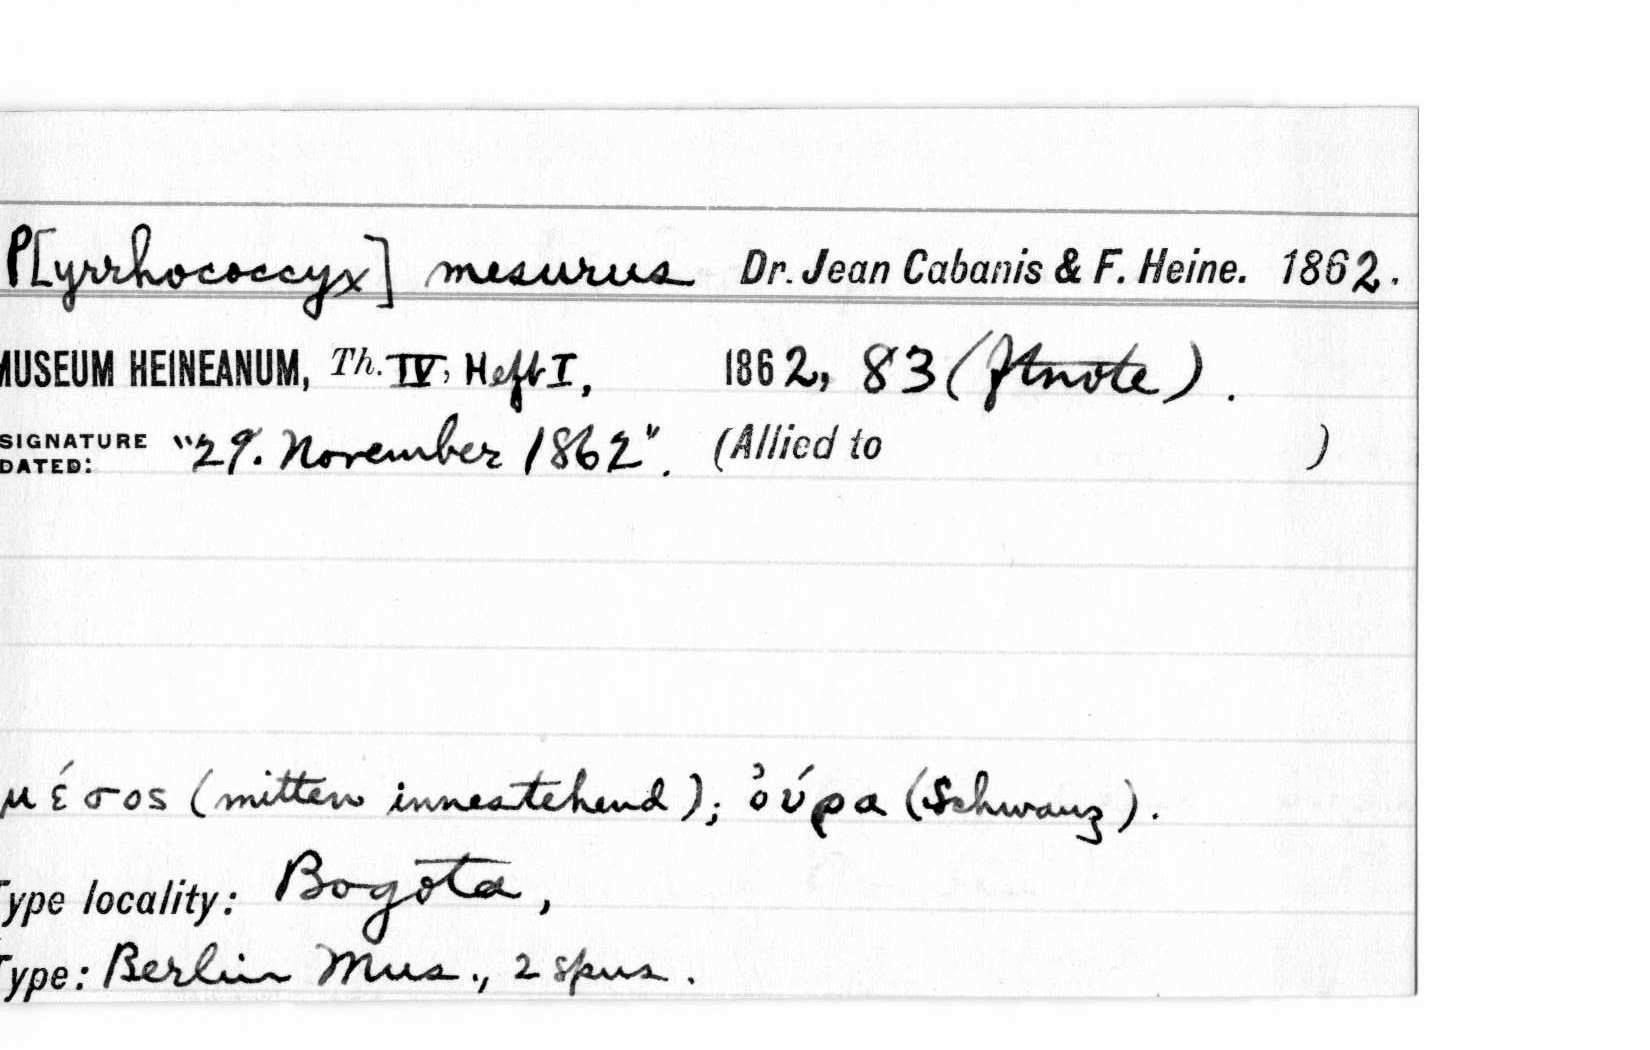 P[yrrhococcyx] mesurus Dr. Jean Cabanis & F. Heine. 1862.
MUSEUM HEINEANUM, Th. IV, Heft I, 1862, 83 (ftnote).
SIGNATURE DATED: "29. November 1862". (Allied to )
μέσος (mitten innestehend); ὀύρα (Schwanz).
Type locality: Bogota,
Type: Berlin Mus., 2 spns.